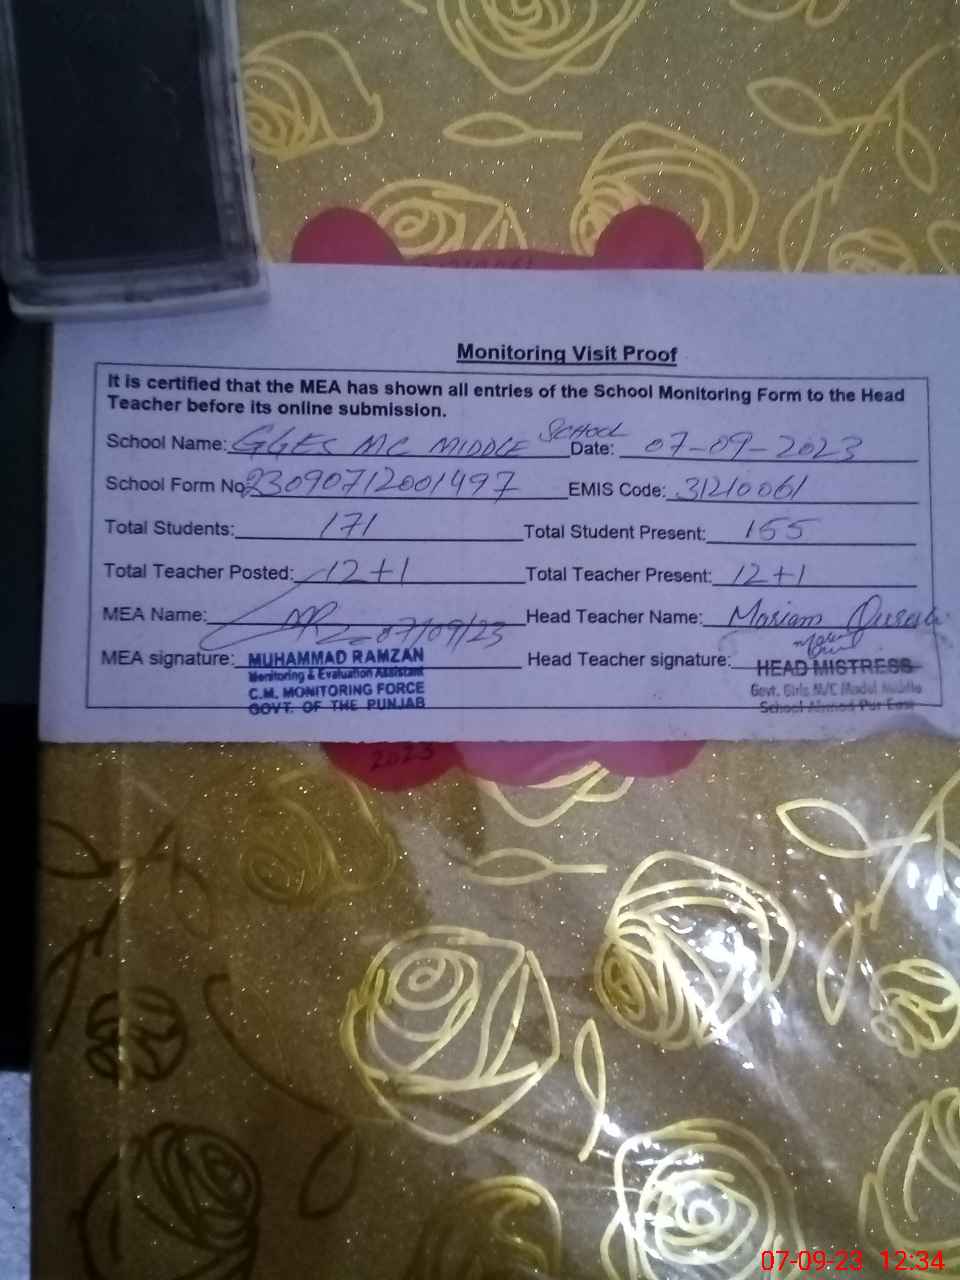 Monitoring Visit Proof
It is certified that the MEA has shown all entries of the School Monitoring Form to the Head
Teacher before its online submission.
School Name: GGES MC MIDDLE SCHOOL Date: 07-09-2023
School Form No 23090712001497 EMIS Code: 31210061
Total Students: 171 Total Student Present: 155
Total Teacher Posted: 12+1 Total Teacher Present: 12+1
MEA Name: 07/09/23 Head Teacher Name: Mariam
MEA signature: MUHAMMAD RAMZAN Head Teacher signature: HEAD MISTRESS
Monitoring & Evaluation Assistant Govt. Girls M/C Model Middle
C.M. MONITORING FORCE School Ahmed Pur East
GOVT. OF THE PUNJAB
2023
07-09-23 12:34